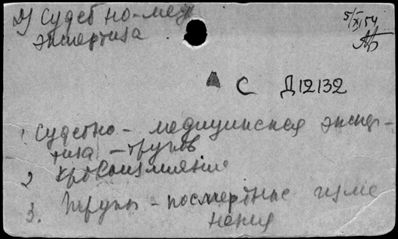 Д) Судебно-мед
экспертиза
5/XI 54
А С Д12132
1. Судебно-медицинская экспер-
тиза - трупов
2 Кровоизлияние
3. Трупы - посмертные изме
нения